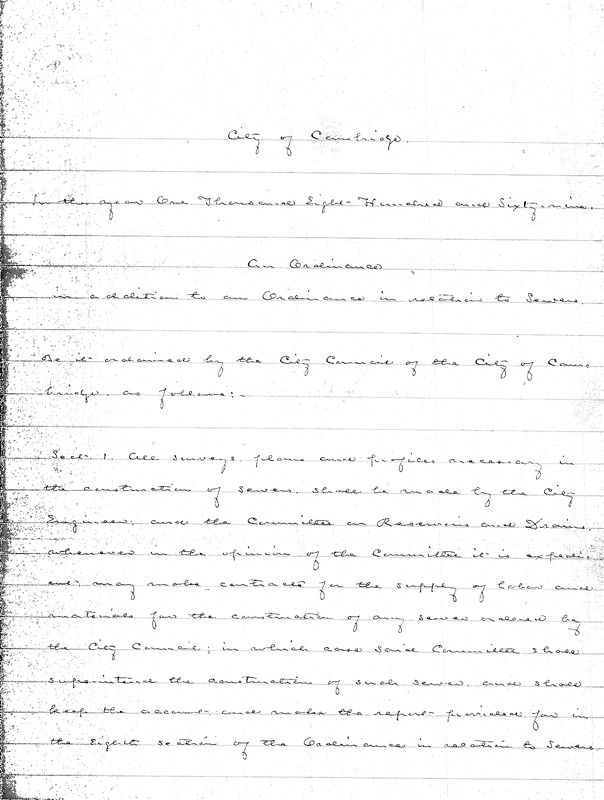 City of Cambridge.
In the year One Thousand Eight Hundred and Sixty-nine.
An Ordinance
in addition to an Ordinance in relation to Sewers.
Be it ordained by the City Council of the City of Cam-
bridge, as follows:-
Sect. 1. All surveys, plans and profiles necessary in
the construction of sewers, shall be made by the City
Engineer, and the Committee on Reservoirs and Drains,
whenever in the opinion of the Committee it is expedi-
ent may make contracts for the supply of labor and
materials for the construction of any sewer ordered by
the City Council; in which case said Committee shall
superintend the construction of such sewer, and shall
keep the account and make the report provided for in
the Eighth section of the Ordinance in relation to Sewers